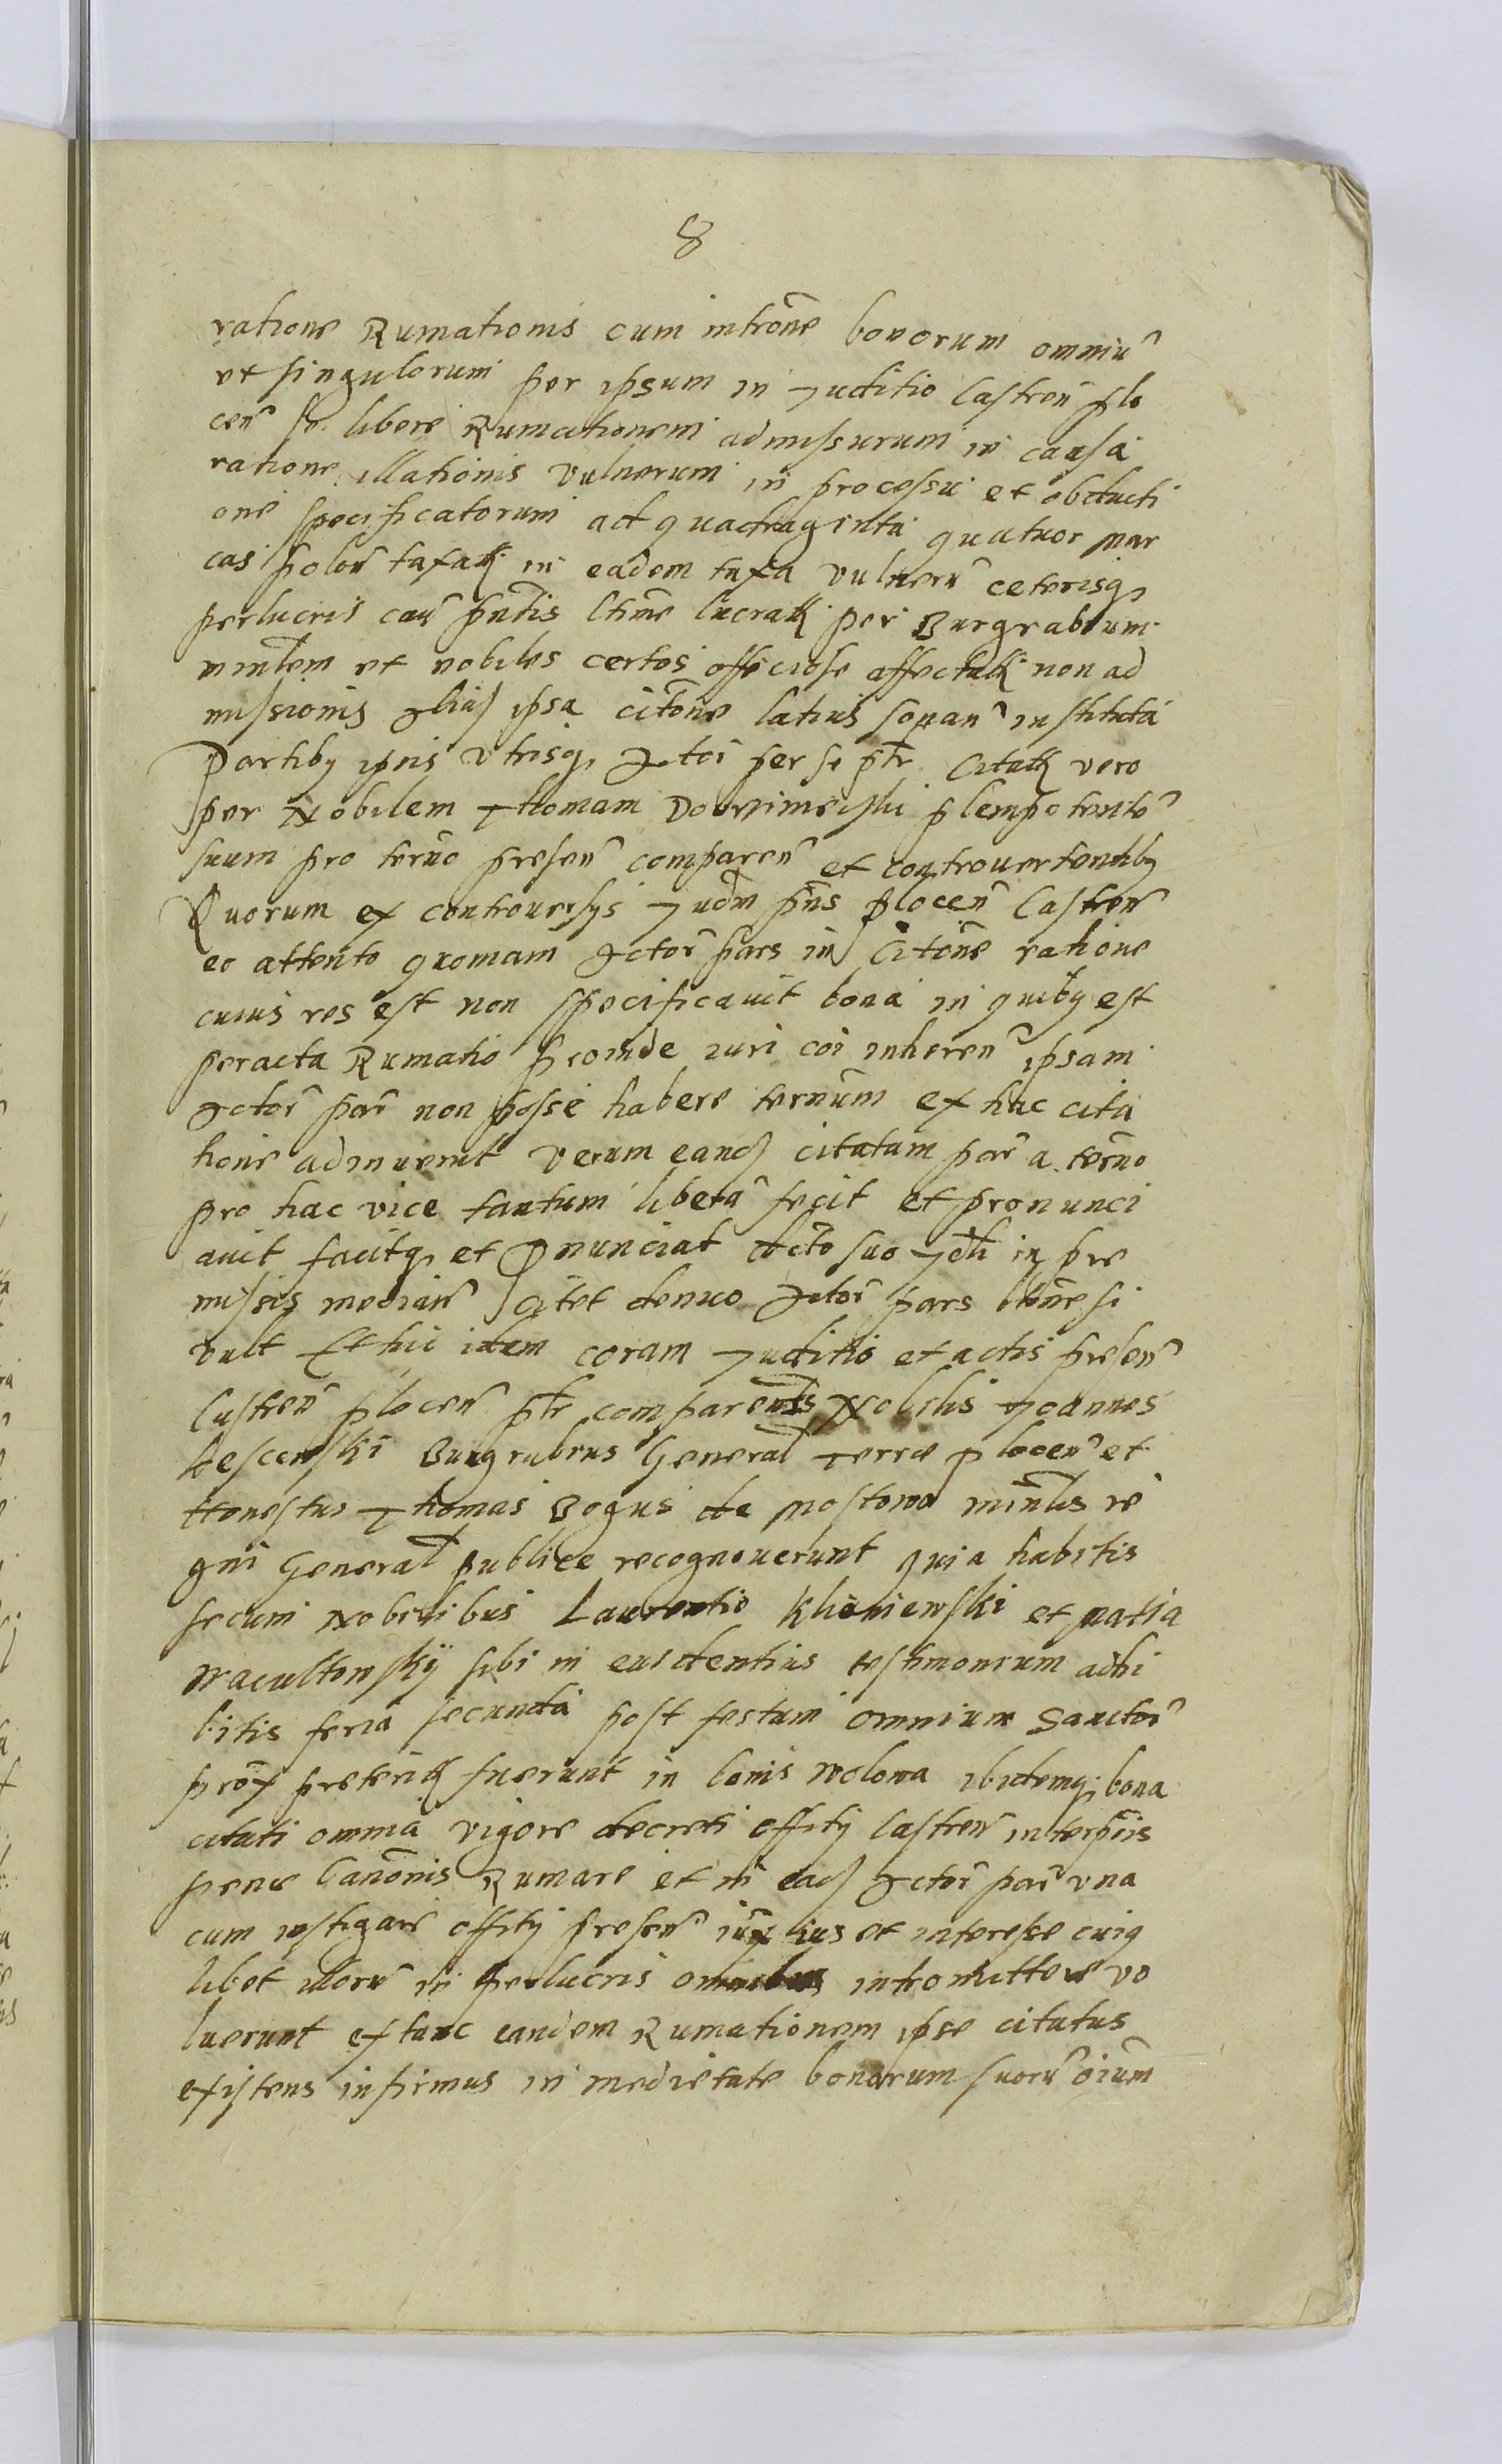 8
ratione Rumationis cum introne bonorum omniu
et singulorum per ipsum in Juditio Castren plo
cen se libere Rumationem admissurum in causa
ratione illationis vulnerum in processu et obducti
one specificatorum ad quadraginta quatuor mar
cas polon taxat in eadem taxa vulneru ceterisq
perlucris caus pntis ltime lucrat per Burgrabium
mintlem et nobiles certos officiose affectat non ad
missionis ipsa citone latius sonan instituta
Partiby ipsis utrisq Actor per se ptr Citat vero
per Nobilem Thomam plenipotente
suum pro termo presen comparen et controuertentiby
Quorum ex controuersys Judm pns plocen Castren
eo attento quoniam Actor pars in Citone ratione
cuius res est non specificauit bona in quiby est
peracta Rumatio proinde iuri coi inheren ipsam
Actor par non posse habere termum ex hac cita
tione adinuenit Verum eand citatam par a termo
pro hac vice tantum libera fecit et pronunci
auit facitq et Pnunciat dcto suo Jdli in pre
missis median Citet denuo Actor pars ltime si
vult Et hic idem coram Juditio et actis presen
Castren plocen ptr comparentes Nobilis Joannes
Lescenski Burgrabius General Terre plocen et
Honestus Thomas Bogus de Mostowo mintlis re
gni General publice recognouerunt quia habitis
secum Nobilibus Laurentio Khoniewski et Matia
sibi in euidentius testimonium adhi
bitis feria secunda post festum Omnium Sanctor
prox preterit fuerunt in bonis Wolowa ibidemq bona
citati omnia vigore decreti offity Castren interpois
pene Canonis Rumare et in ead Actor par una
cum instigare offity presen iux ius et interesse cuiq
libet illoru in perlucris omnibus intromittere vo
luerunt extunc eandem Rumationem ipse citatus
existens infirmus in medietate bonorum suoru oium